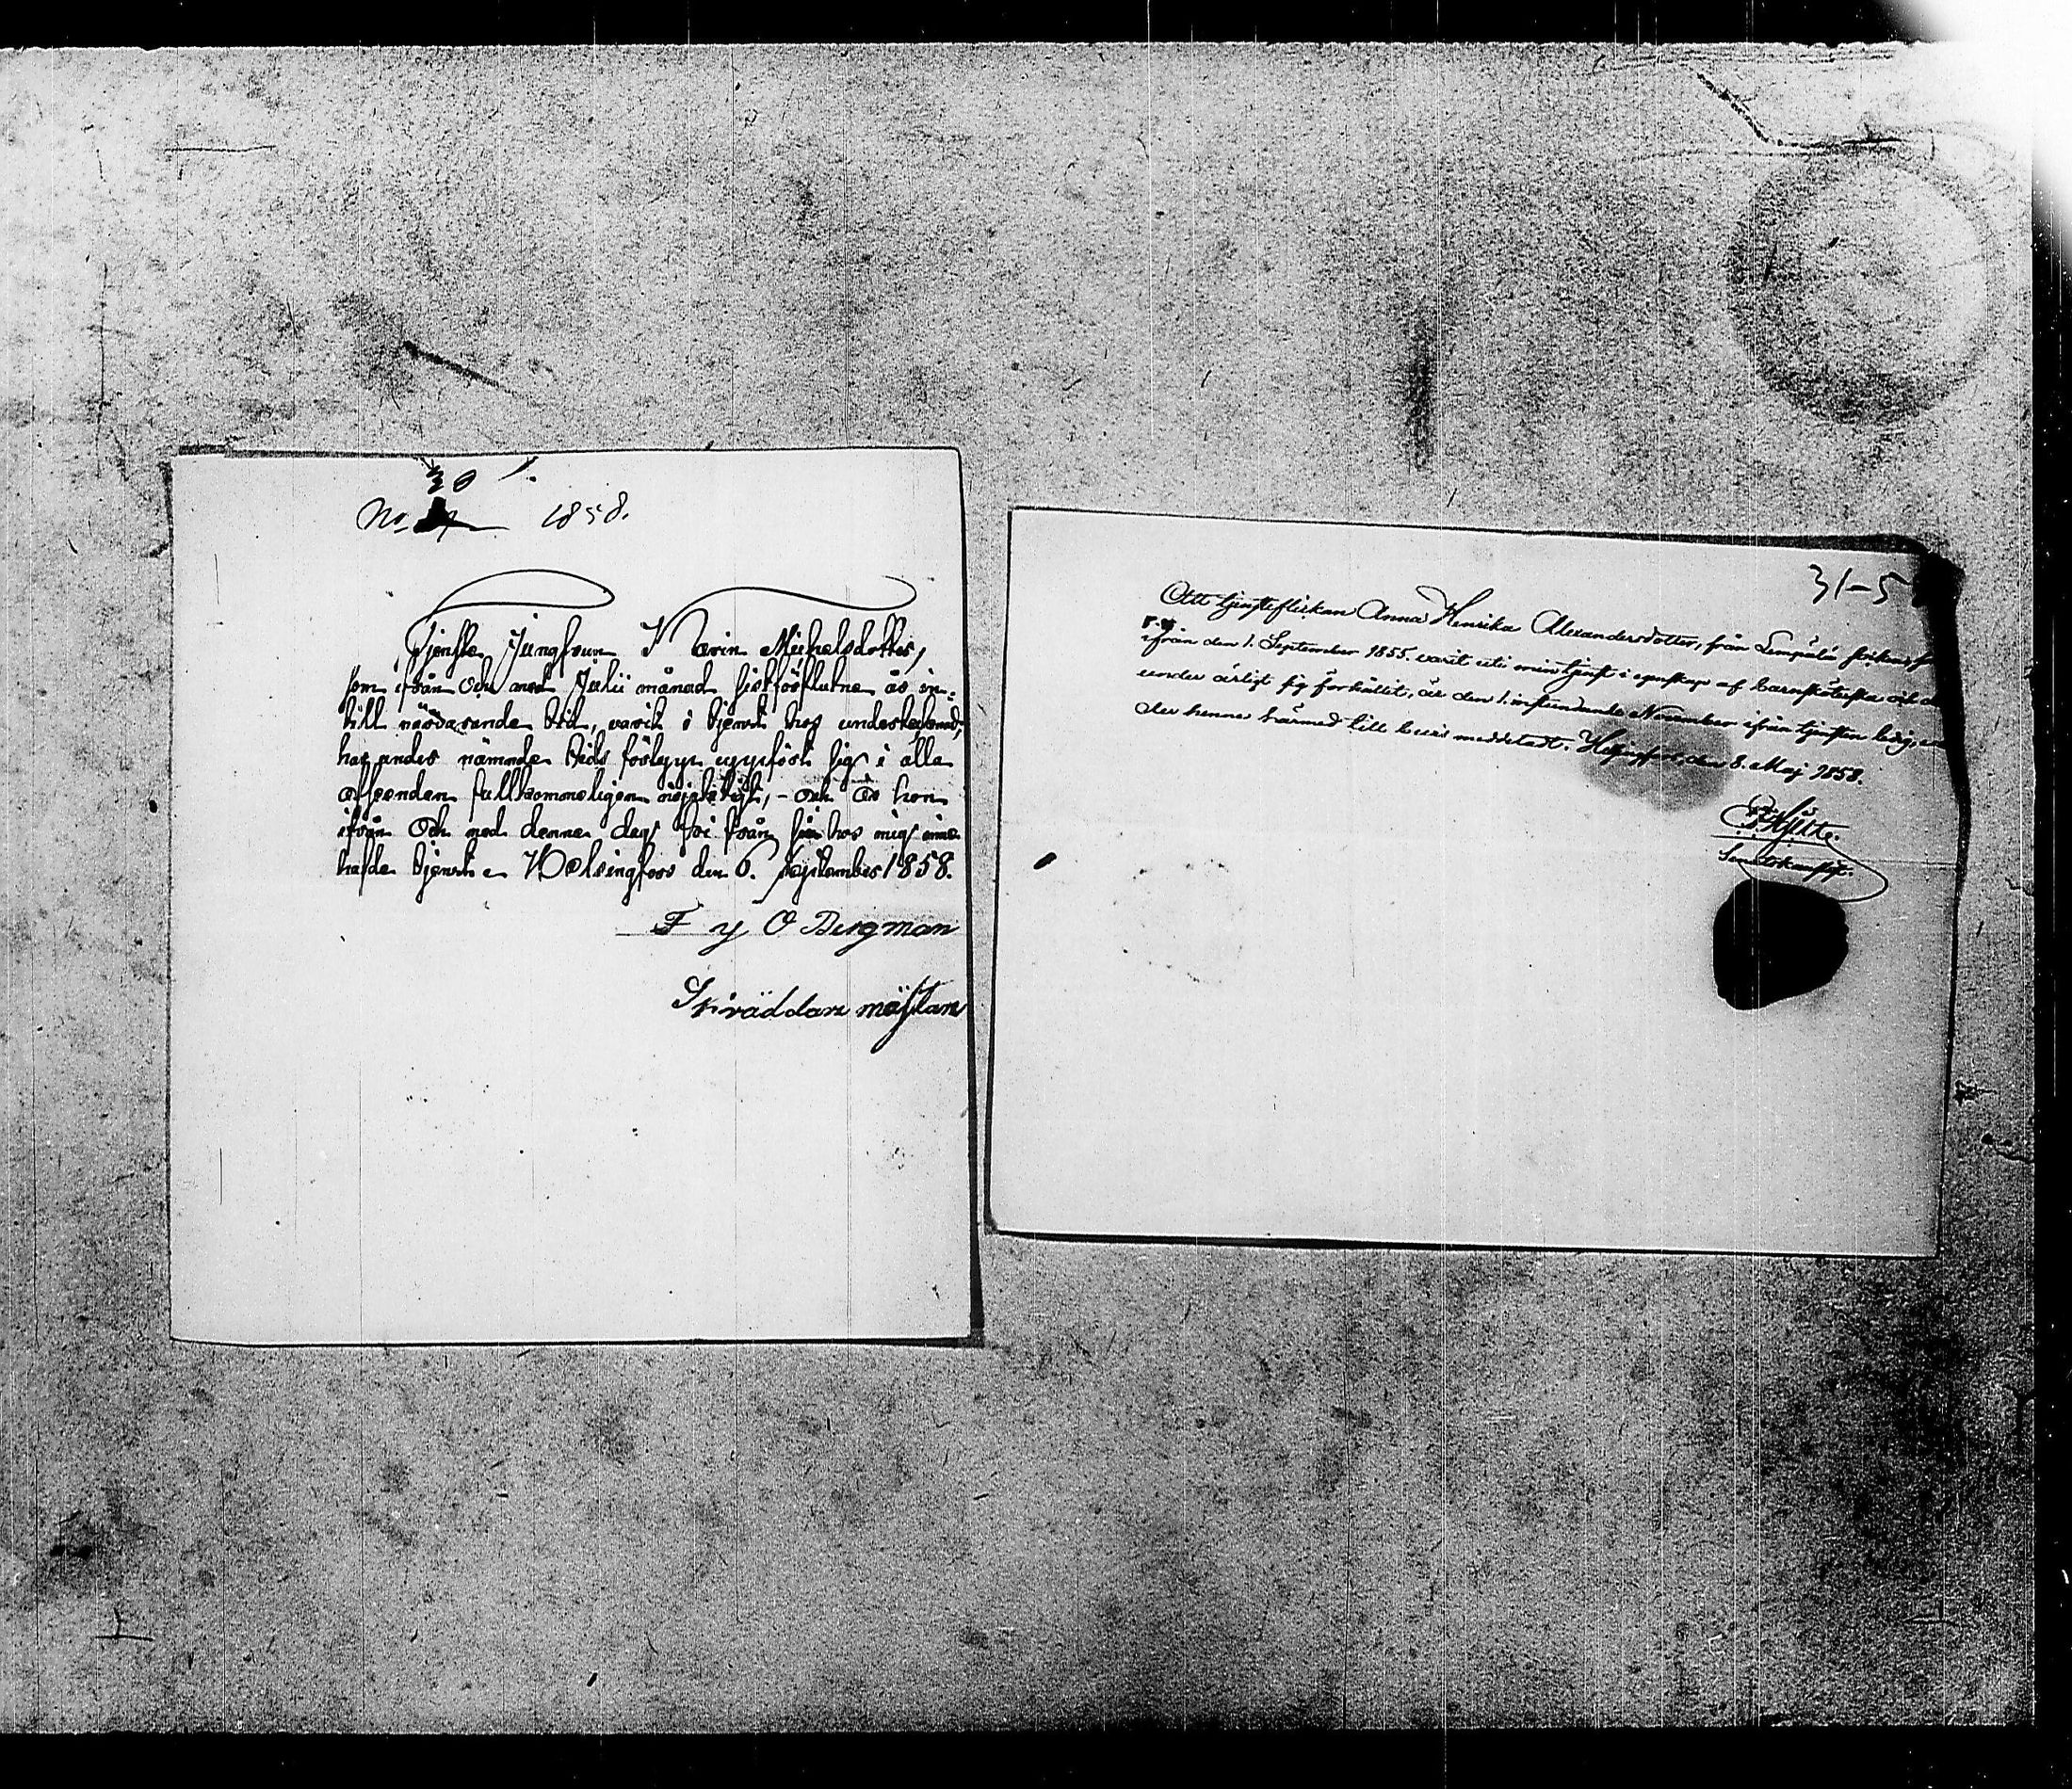 30
No. 1858.
Tjenste Jungfrun Karin Michelsdotter,
som ifrån Och med Julii månad sistförflutne år in-
till närvarande tid, varit i tjenst hos undertecknad,
har under nämnde tids förlopp uppfört sig i alla
afseenden fullkommeligen – och är hon
ifrån Och med denne dag fri från sin hos mig inne
hafde tjenst. Helsingfors den 6. September 1858.
F y O Bergman
Skräddare mästare
31-5
Att tjensteflickan Anna Henrika Alexandersdotter, från Lempälä socken,
ifrån den 1. September 1855. varit uti min tjenst i egenskap af barnsköterska och
under ärligt sig förhållit, är den 1. instundande November ifrån tjensten ledig,
der henne härmed till bevis meddeladt. Helsingfors den 8. Maj 1858.